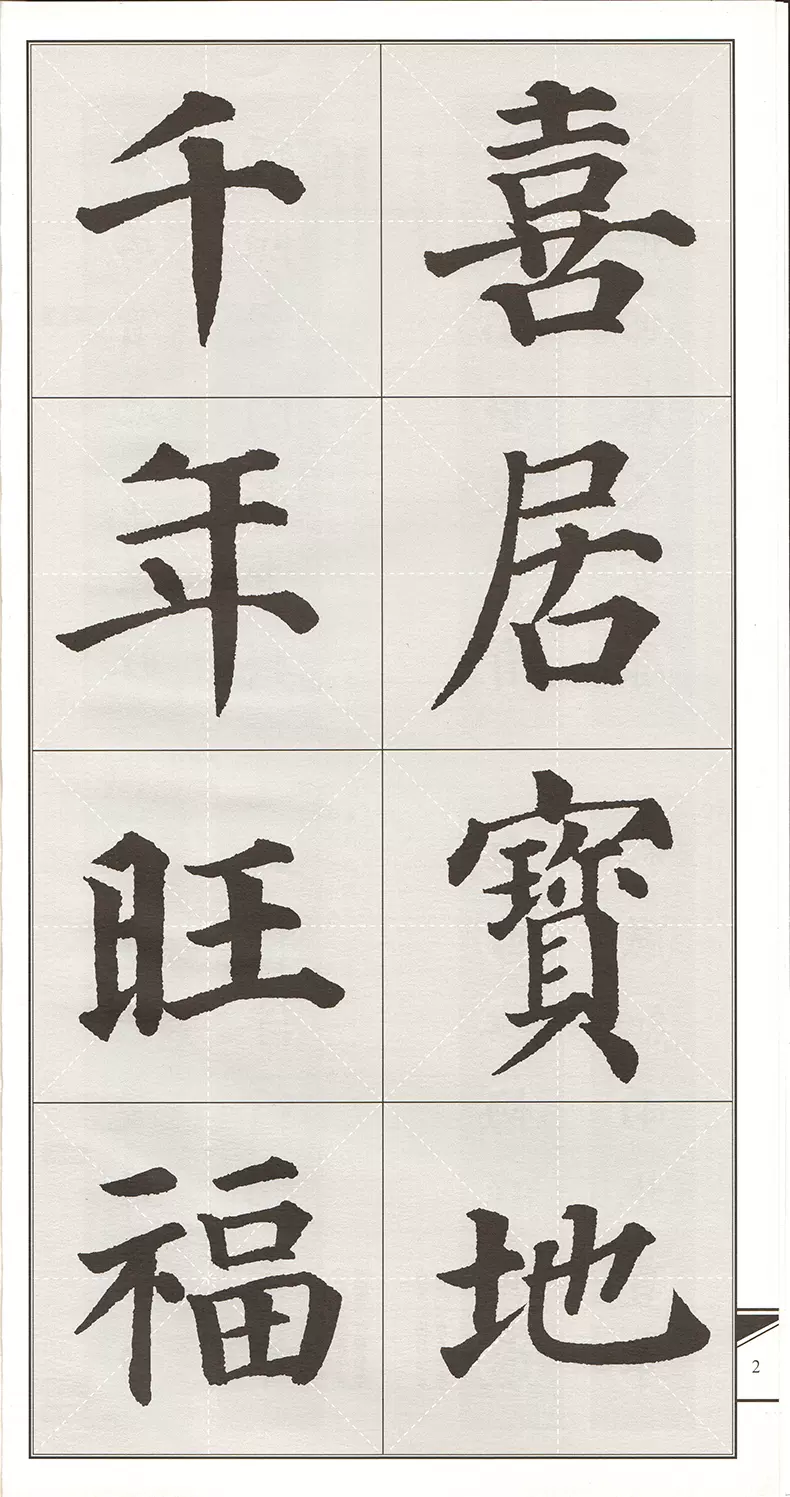 喜居寶地
千年旺福
2